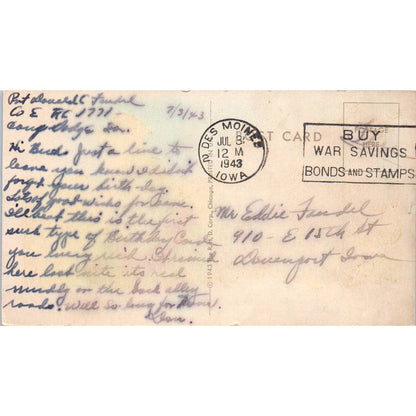 Pvt Donald C Fendel
Co E RC 1771 -
Camp Dodge Ia.
7/3/43
Hi Buds Just a line to
leave you know I didn't
forget your birth-day.
Lots of good wishs for
I'll bet this is the first
such type of Birthday Card
you every rec'd.
here last nite its real
muddy on the back alley
roads. Will So long for now
Don.
DES MOINES
JUL 3
12 M
1943
IOWA
POST CARD
PLACE
HERE
BUY
WAR SAVINGS
BONDS AND STAMPS
Mr Eddie Fendel
910 - E 15th St
Davenport Iowa